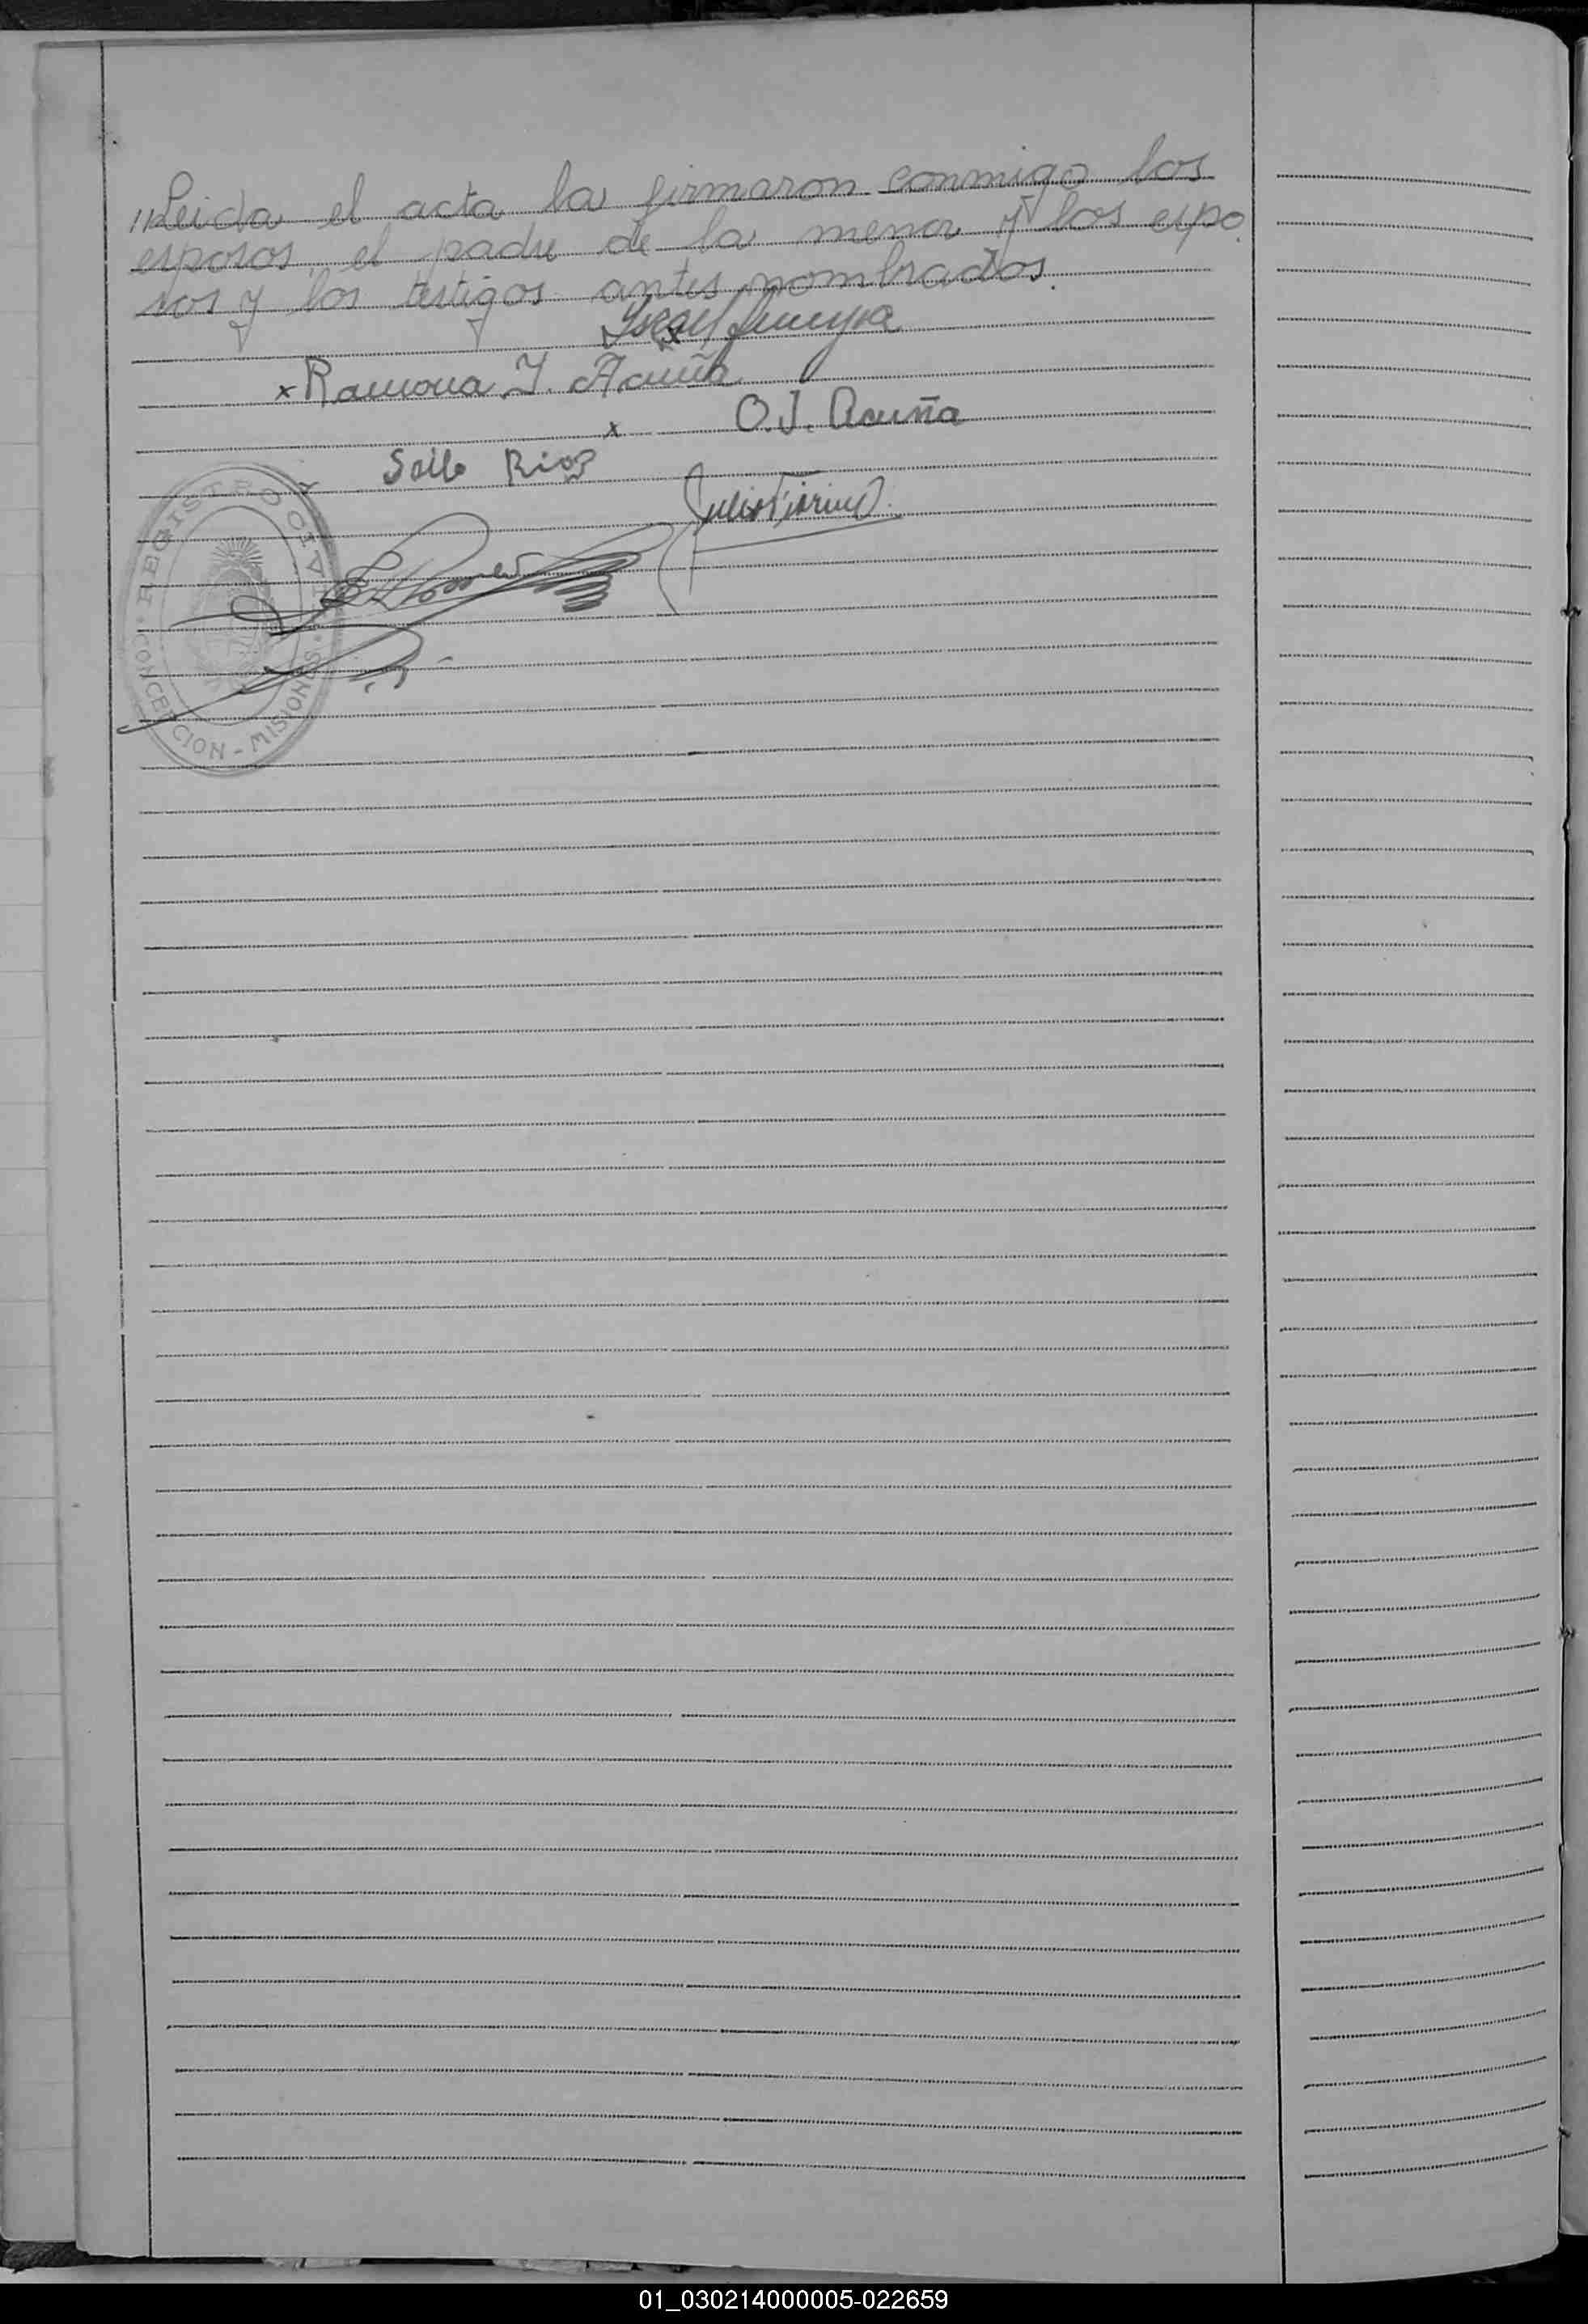 "Leida el acta la firmaron conmigo los
esposos, el padre de la menor y los espo
sos y los testigos antes nombrados.
x Ramona I. Acuña
x O.J. Acuña
Rios
Julio
REGISTRO CIVIL
CONCEPCION - MISIONES
01_030214000005-022659